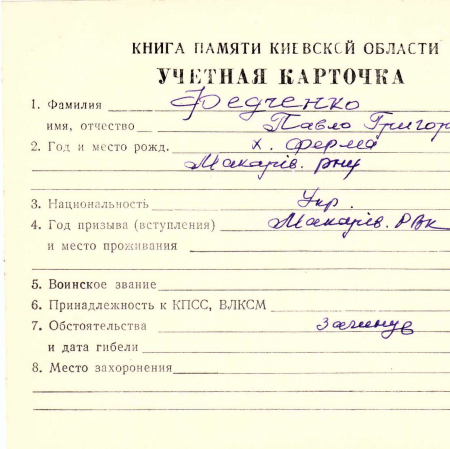 КНИГА ПАМЯТИ КИЕВСКОЙ ОБЛАСТИ
УЧЕТНАЯ КАРТОЧКА
1. Фамилия Федченко
имя, отчество Павло Григор
2. Год и место рожд. х. Ферма
Макарів. рну
3. Национальность Укр.
4. Год призыва (вступления) Макарів. РВК
и место проживания
5. Воинское звание
6. Принадлежность к КПСС, ВЛКСМ
7. Обстоятельства загинув
и дата гибели
8. Место захоронения